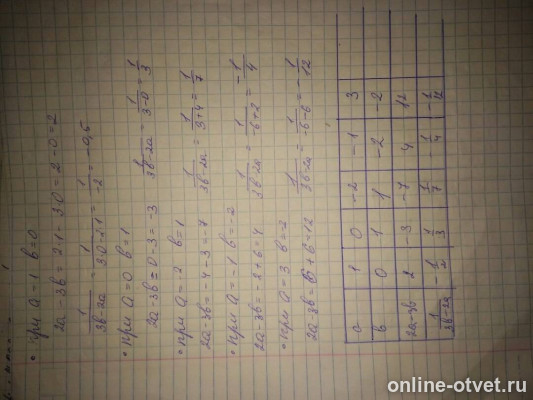 • при a=1 b=0
2a-3b = 2·1 - 3·0 = 2-0 = 2
1/(3b-2a) = 1/(3·0-2·1) = 1/-2 = -0,5
• при a=0 b=1
2a-3b = 0-3 = -3
1/(3b-2a) = 1/(3-0) = 1/3
• при a=-2 b=1
2a-3b = -4-3 = -7
1/(3b-2a) = 1/(3+4) = 1/7
• при a=-1 b=-2
2a-3b = -2+6 = 4
1/(3b-2a) = 1/(-6+2) = -1/4
• при a=3 b=-2
2a-3b = 6+6 = 12
1/(3b-2a) = 1/(-6-6) = -1/12
a 1 0 -2 -1 3
b 0 1 1 -2 -2
2a-3b 2 -3 -7 4 12
1/(3b-2a) -1/2 1/3 1/7 -1/4 -1/12
online-otvet.ru